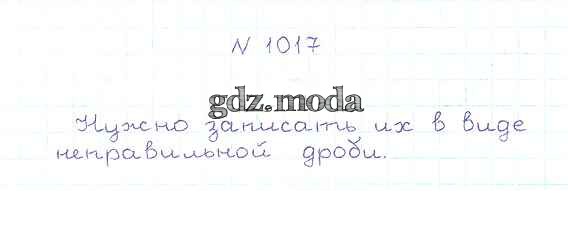 N 1017
gdz.moda
Нужно записать их в виде
неправильной дроби.